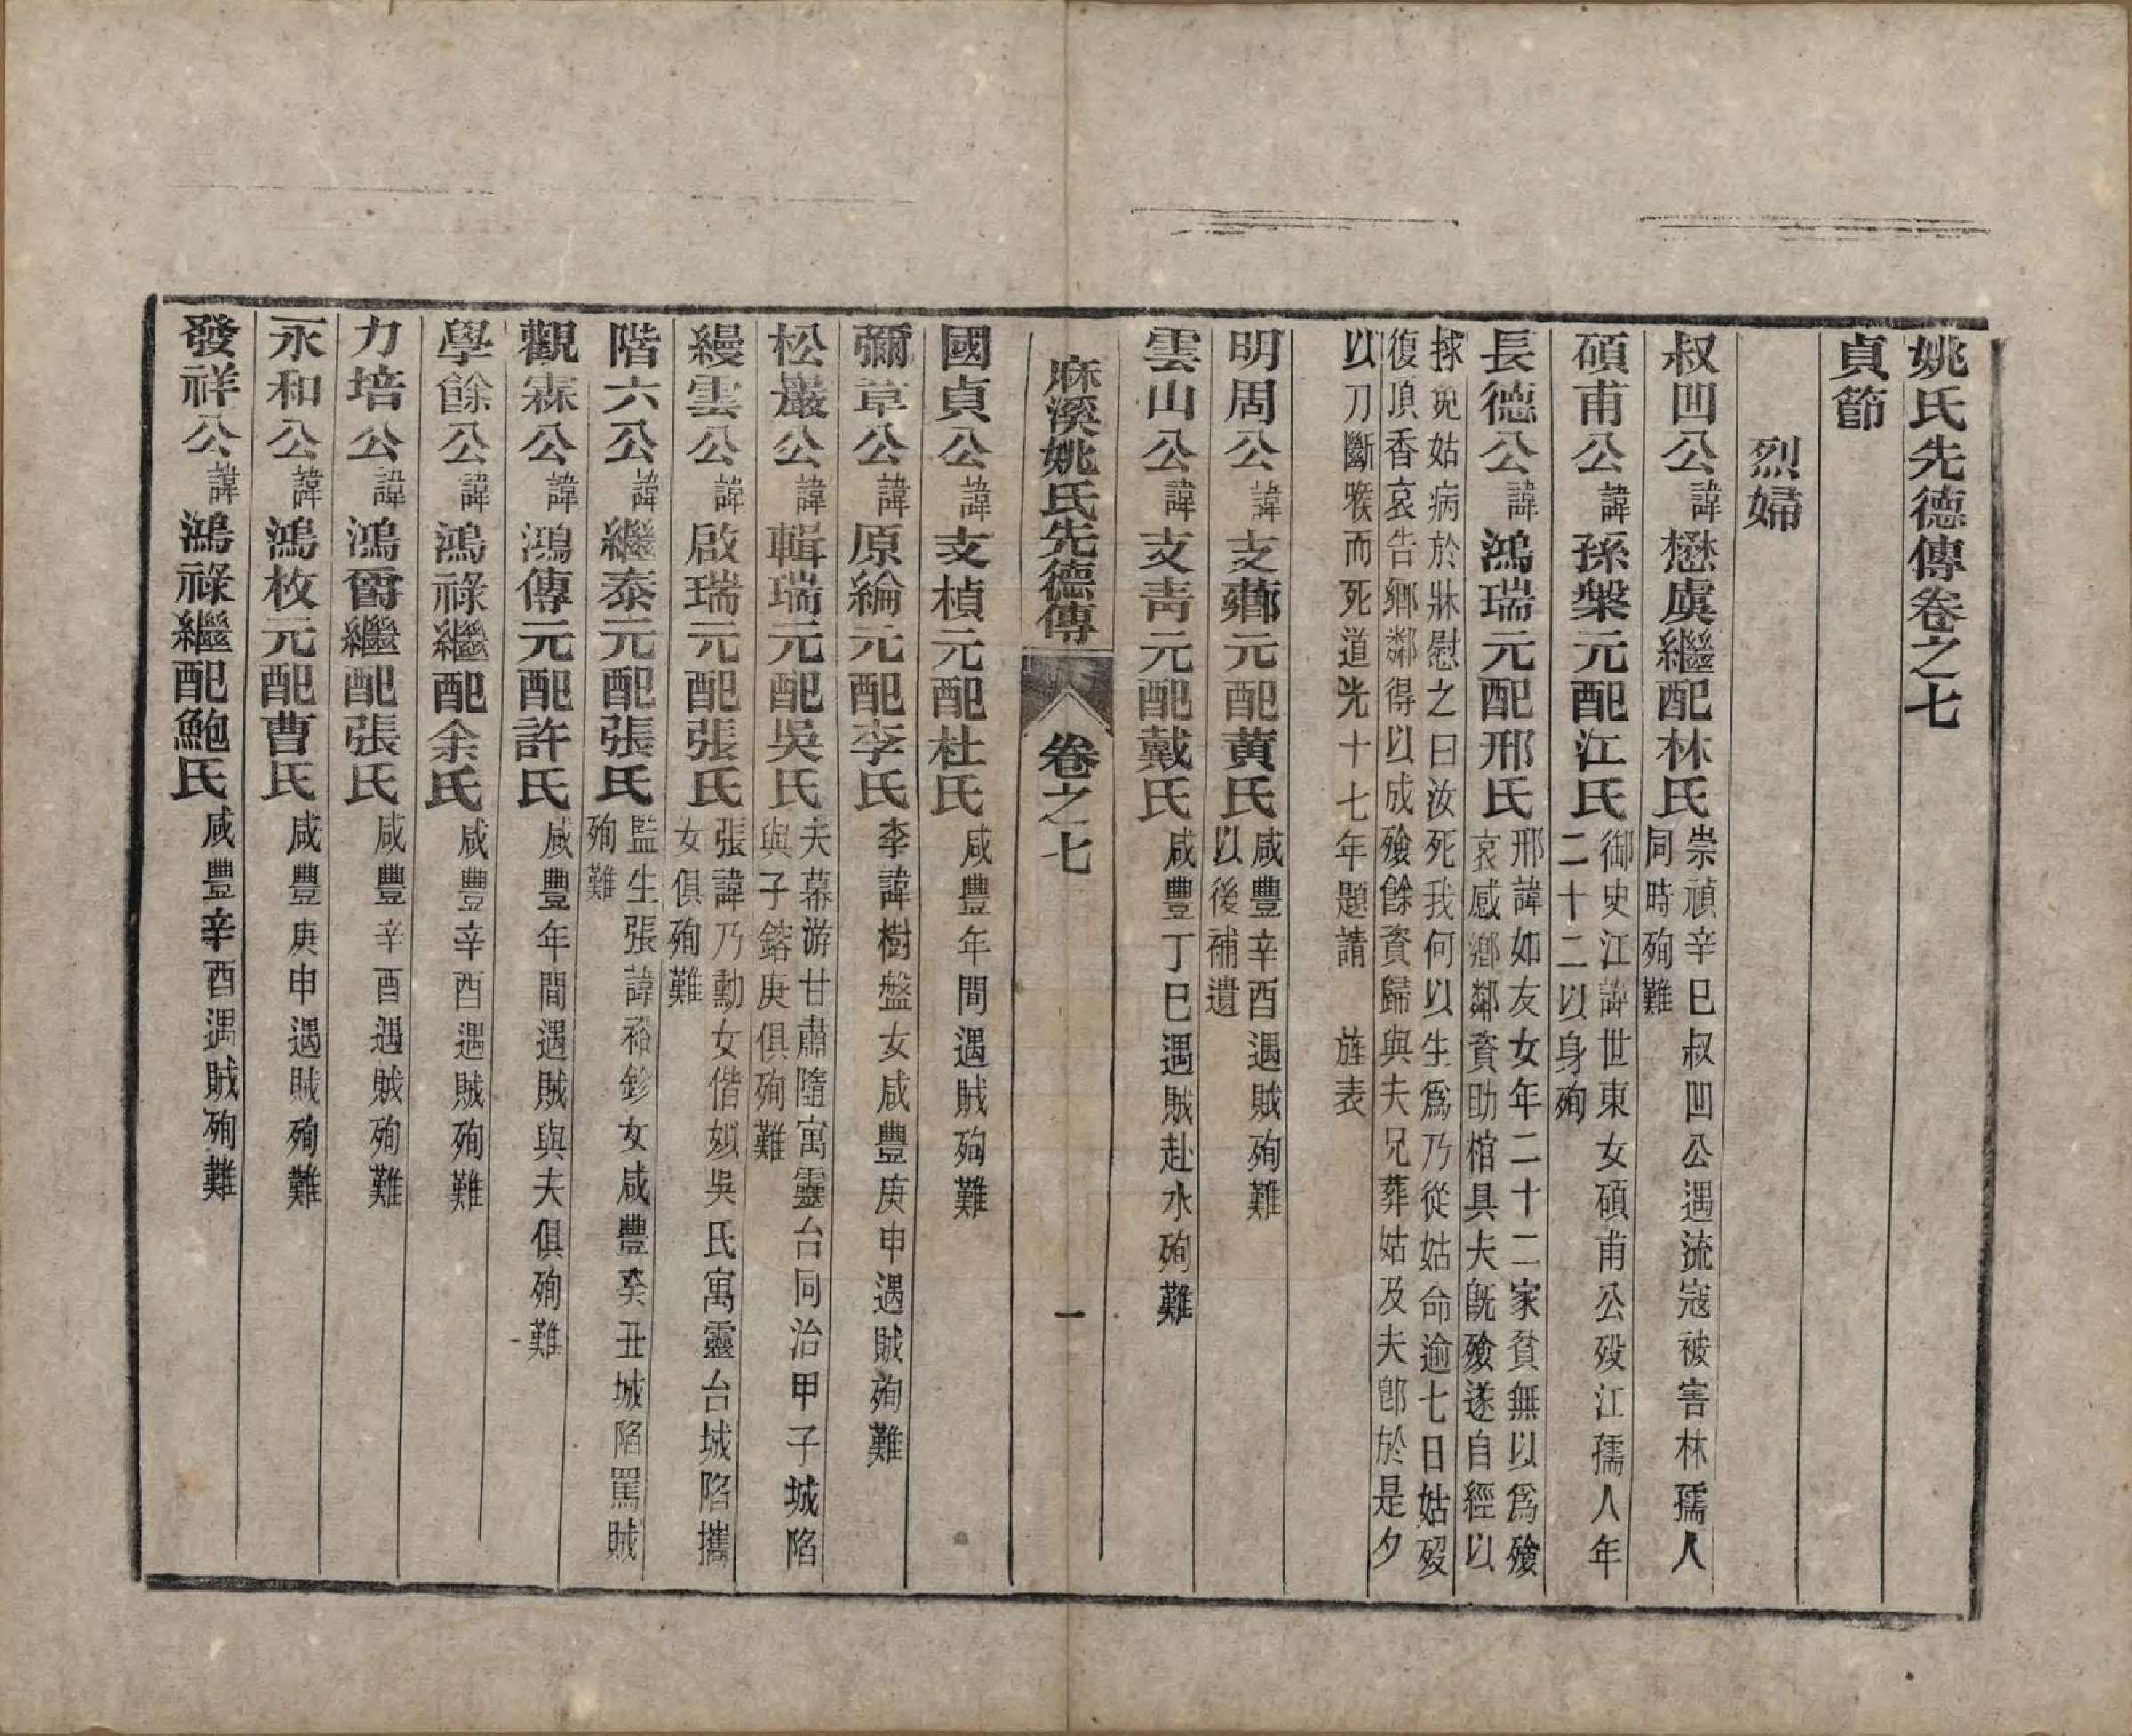 姚氏先德傳卷之七
貞節
烈婦
叔凹公諱懋虞繼配林氏崇禎辛巳叔凹公遇流寇被害林孺人
同時殉難
碩甫公諱孫槃元配江氏御史江諱世東女碩甫公歿江孺人年
二十二以身殉
長德公諱鴻瑞元配邢氏邢諱如友女年二十二家貧無以爲殮
哀慼鄉鄰資助棺具夫旣殮遂自經以
捄免姑病於牀慰之曰汝死我何以生爲乃從姑命逾七日姑歿
復頂香哀告鄉鄰得以成殮餘資歸與夫兄葬姑及夫卽於是夕
以刀斷喉而死道光十七年題請　旌表
明周公諱支薌元配黄氏咸豐辛酉遇賊殉難
以後補遺
雲山公諱支青元配戴氏咸豐丁巳遇賊赴水殉難
麻溪姚氏先德傳　卷之七　一
國貞公諱支楨元配杜氏咸豐年間遇賊殉難
彌章公諱原綸元配李氏李諱樹盤女咸豐庚申遇賊殉難
松巖公諱輯瑞元配吳氏夫幕游甘肅隨寓靈台同治甲子城陷
與子鎔庚俱殉難
縵雲公諱啟瑞元配張氏張諱乃勳女偕姒吳氏寓靈台城陷攜
女俱殉難
階六公諱繼泰元配張氏監生張諱裕鉁女咸豐癸丑城陷罵賊
殉難
觀霖公諱鴻傳元配許氏咸豐年間遇賊與夫俱殉難
學餘公諱鴻祿繼配余氏咸豐辛酉遇賊殉難
力培公諱鴻爵繼配張氏咸豐辛酉遇賊殉難
永和公諱鴻枚元配曹氏咸豐庚申遇賊殉難
發祥公諱鴻祿繼配鮑氏咸豐辛酉遇賊殉難